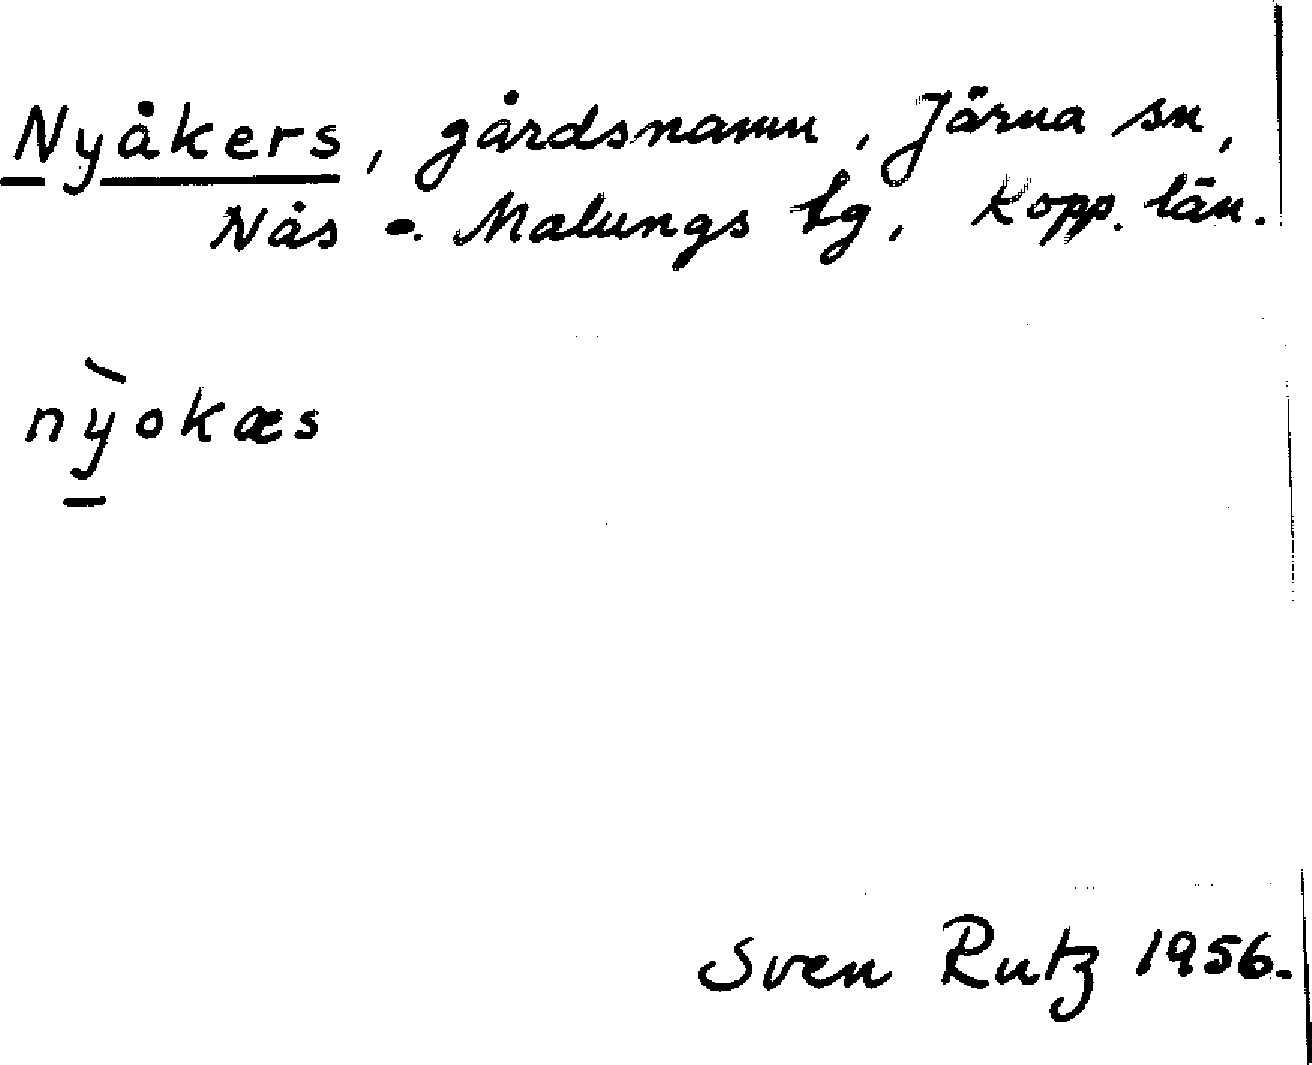 Nyåkers, gårdsnamn, Järna sn,
Nås o. Malungs tg, Kopp. län.
nỳ̠okæs
Sven Rutz 1956.